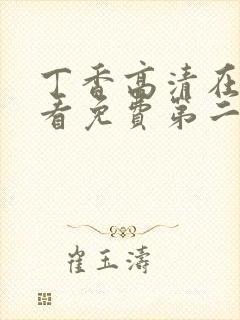 丁香高清在
看免费第二
崔玉涛